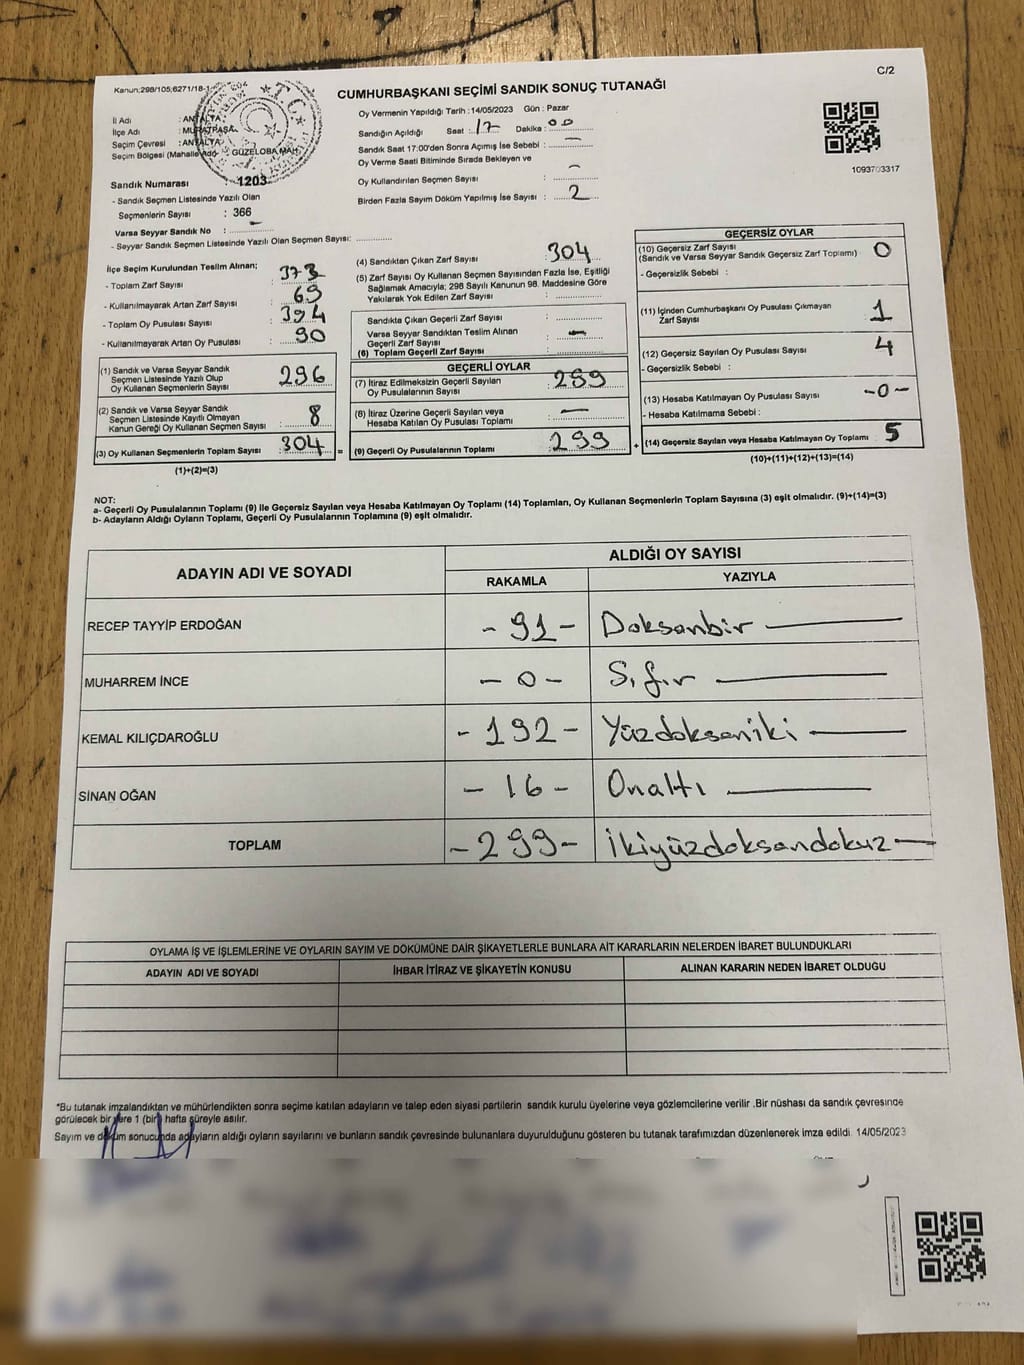 Kanun:298/105,6271/18-1
C/2
CUMHURBAŞKANI SEÇİMİ SANDIK SONUÇ TUTANAĞI
Oy Vermenin Yapıldığı Tarih :14/05/2023 Gün : Pazar
İl Adı : ANTALYA
İlçe Adı : MURATPAŞA
Seçim Çevresi : ANTALYA
Seçim Bölgesi (Mahalle Adı) GÜZELOBA MAH.
T.C.
Sandığın Açıldığı Saat : 17 Dakika : 00
Sandık Saat 17:00'den Sonra Açımış İse Sebebi : –
Oy Verme Saati Bitiminde Sırada Bekleyen ve
Oy Kullandırılan Seçmen Sayısı : –
Birden Fazla Sayım Döküm Yapılmış İse Sayısı : 2
1093703317
Sandık Numarası : 1203
- Sandık Seçmen Listesinde Yazılı Olan
Seçmenlerin Sayısı : 366
Varsa Seyyar Sandık No : –
- Seyyar Sandık Seçmen Listesinde Yazılı Olan Seçmen Sayısı:
İlçe Seçim Kurulundan Teslim Alınan;
- Toplam Zarf Sayısı : 373
- Kullanılmayarak Artan Zarf Sayısı : 69
- Toplam Oy Pusulası Sayısı : 394
- Kullanılmayarak Artan Oy Pusulası : 90
(1) Sandık ve Varsa Seyyar Sandık
Seçmen Listesinde Yazılı Olup
Oy Kullanan Seçmenlerin Sayısı : 296
(2) Sandık ve Varsa Seyyar Sandık
Seçmen Listesinde Kayıtlı Olmayan
Kanun Gereği Oy Kullanan Seçmen Sayısı : 8
(3) Oy Kullanan Seçmenlerin Toplam Sayısı : 304
(1)+(2)=(3)
(4) Sandıktan Çıkan Zarf Sayısı : 304
(5) Zarf Sayısı Oy Kullanan Seçmen Sayısından Fazla İse, Eşitliği
Sağlamak Amacıyla; 298 Sayılı Kanunun 98. Maddesine Göre
Yakılarak Yok Edilen Zarf Sayısı :
Sandıkta Çıkan Geçerli Zarf Sayısı :
Varsa Seyyar Sandıktan Teslim Alınan
Geçerli Zarf Sayısı : –
(6) Toplam Geçerli Zarf Sayısı :
GEÇERLİ OYLAR
(7) İtiraz Edilmeksizin Geçerli Sayılan
Oy Pusulalarının Sayısı : 299
(8) İtiraz Üzerine Geçerli Sayılan veya
Hesaba Katılan Oy Pusulası Toplamı : –
= (9) Geçerli Oy Pusulalarının Toplamı : 299
GEÇERSİZ OYLAR
(10) Geçersiz Zarf Sayısı
(Sandık ve Varsa Seyyar Sandık Geçersiz Zarf Toplamı) : 0
- Geçersizlik Sebebi :
(11) İçinden Cumhurbaşkanı Oy Pusulası Çıkmayan
Zarf Sayısı : 1
(12) Geçersiz Sayılan Oy Pusulası Sayısı : 4
- Geçersizlik Sebebi :
(13) Hesaba Katılmayan Oy Pusulası Sayısı : -0-
- Hesaba Katılmama Sebebi :
+ (14) Geçersiz Sayılan veya Hesaba Katılmayan Oy Toplamı : 5
(10)+(11)+(12)+(13)=(14)
NOT:
a- Geçerli Oy Pusulalarının Toplamı (9) ile Geçersiz Sayılan veya Hesaba Katılmayan Oy Toplamı (14) Toplamları, Oy Kullanan Seçmenlerin Toplam Sayısına (3) eşit olmalıdır. (9)+(14)=(3)
b- Adayların Aldığı Oyların Toplamı, Geçerli Oy Pusulalarının Toplamına (9) eşit olmalıdır.
ADAYIN ADI VE SOYADI
ALDIĞI OY SAYISI
RAKAMLA YAZIYLA
RECEP TAYYİP ERDOĞAN - 91 - Doksanbir
MUHARREM İNCE - 0 - Sıfır
KEMAL KILIÇDAROĞLU - 192 - Yüzdoksaniki
SİNAN OĞAN - 16 - Onaltı
TOPLAM - 299 - İkiyüzdoksandokuz
OYLAMA İŞ VE İŞLEMLERİNE VE OYLARIN SAYIM VE DÖKÜMÜNE DAİR ŞİKAYETLERLE BUNLARA AİT KARARLARIN NELERDEN İBARET BULUNDUKLARI
ADAYIN ADI VE SOYADI İHBAR İTİRAZ VE ŞİKAYETİN KONUSU ALINAN KARARIN NEDEN İBARET OLDUGU
*Bu tutanak imzalandıktan ve mühürlendikten sonra seçime katılan adayların ve talep eden siyasi partilerin sandık kurulu üyelerine veya gözlemcilerine verilir .Bir nüshası da sandık çevresinde
görülecek bir yere 1 (bir) hafta süreyle asılır.
Sayım ve döküm sonucunda adayların aldığı oyların sayılarını ve bunların sandık çevresinde bulunanlara duyurulduğunu gösteren bu tutanak tarafımızdan düzenlenerek imza edildi. 14/05/2023